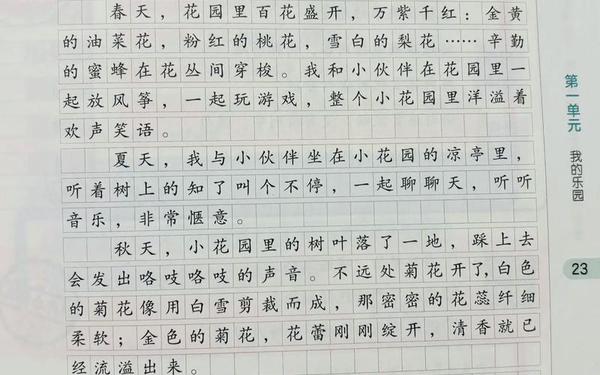 春天，花园里百花盛开，万紫千红：金黄
的油菜花，粉红的桃花，雪白的梨花……辛勤
的蜜蜂在花丛间穿梭。我和小伙伴在花园里一
起放风筝，一起玩游戏，整个小花园里洋溢着
欢声笑语。
夏天，我与小伙伴坐在小花园的凉亭里，
听着树上的知了叫个不停，一起聊聊天，听听
音乐，非常惬意。
秋天，小花园里的树叶落了一地，踩上去
会发出咯吱咯吱的声音。不远处菊花开了，白色
的菊花像用白雪剪裁而成，那密密的花蕊纤细
柔软；金色的菊花，花蕾刚刚绽开，清香就已
经流溢出来。
第一单元
我的乐园
23